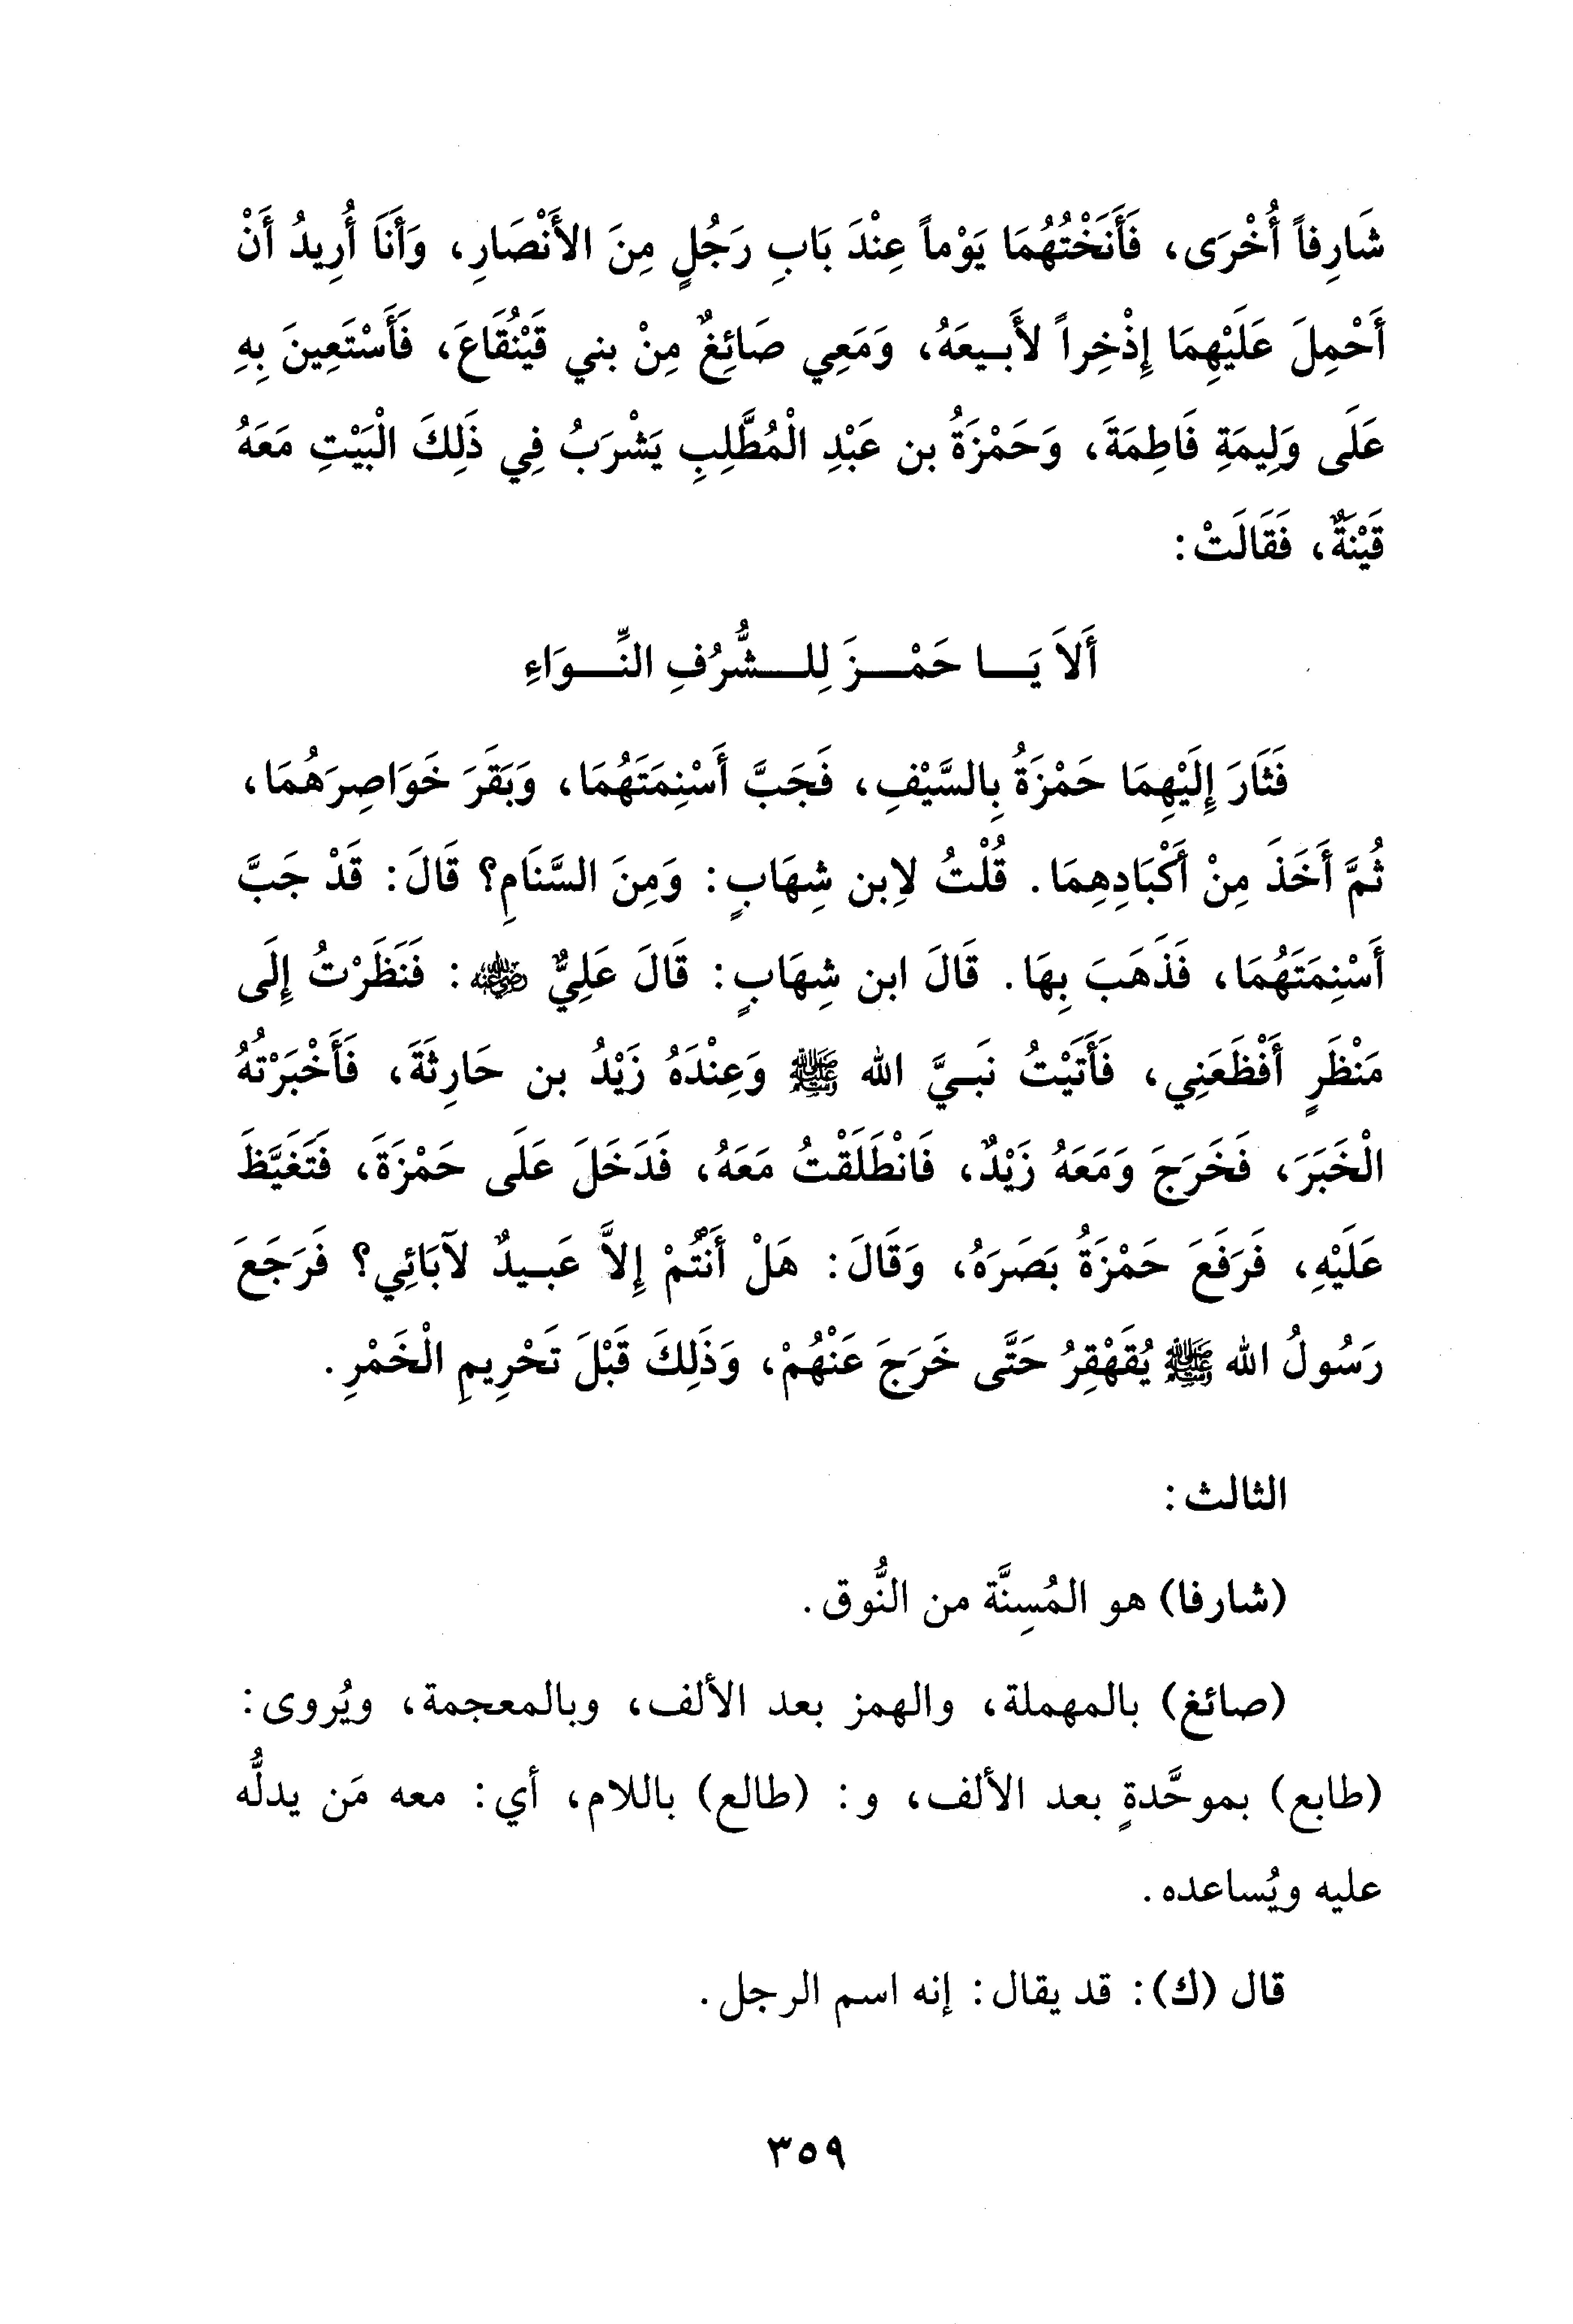 شَارِفاً أُخْرَى، فَأَنَخْتُهُمَا يَوْماً عِنْدَ بَابِ رَجُلٍ مِنَ الأَنْصَارِ، وَأَنَا أُرِيدُ أَنْ
أَحْمِلَ عَلَيْهِمَا إِذْخِراً لأَبِيعَهُ، وَمَعِي صَائِغٌ مِنْ بني قَيْنُقَاعَ، فَأَسْتَعِينَ بِهِ
عَلَى وَلِيمَةِ فَاطِمَةَ، وَحَمْزَةُ بن عَبْدِ الْمُطَّلِبِ يَشْرَبُ فِي ذَلِكَ الْبَيْتِ مَعَهُ
قَيْنَةٌ، فَقَالَتْ:
أَلاَ يَا حَمْزَ لِلشُّرُفِ النِّوَاءِ
فَثَارَ إِلَيْهِمَا حَمْزَةُ بِالسَّيْفِ، فَجَبَّ أَسْنِمَتَهُمَا، وَبَقَرَ خَوَاصِرَهُمَا،
ثُمَّ أَخَذَ مِنْ أَكْبَادِهِمَا. قُلْتُ لاِبن شِهَابٍ: وَمِنَ السَّنَامِ؟ قَالَ: قَدْ جَبَّ
أَسْنِمَتَهُمَا، فَذَهَبَ بِهَا. قَالَ ابن شِهَابٍ: قَالَ عَلِيٌّ رضي الله عنه: فَنَظَرْتُ إِلَى
مَنْظَرٍ أَفْظَعَنِي، فَأَتَيْتُ نَبِيَّ الله ﷺ وَعِنْدَهُ زَيْدُ بن حَارِثَةَ، فَأَخْبَرْتهُ
الْخَبَرَ، فَخَرَجَ وَمَعَهُ زَيْدٌ، فَانْطَلَقْتُ مَعَهُ، فَدَخَلَ عَلَى حَمْزَةَ، فَتَغَيَّظَ
عَلَيْهِ، فَرَفَعَ حَمْزَةُ بَصَرَهُ، وَقَالَ: هَلْ أَنْتُمْ إِلاَّ عَبِيدٌ لآبَائِي؟ فَرَجَعَ
رَسُولُ الله ﷺ يُقَهْقِرُ حَتَّى خَرَجَ عَنْهُمْ، وَذَلِكَ قَبْلَ تَحْرِيمِ الْخَمْرِ.
الثالث:
(شارفا) هو المُسِنَّة من النُّوق.
(صائغ) بالمهملة، والهمز بعد الألف، وبالمعجمة، ويُروى:
(طابع) بموحَّدةٍ بعد الألف، و: (طالع) باللام، أي: معه مَن يدلُّه
عليه ويُساعده.
قال (ك): قد يقال: إنه اسم الرجل.
٣٥٩